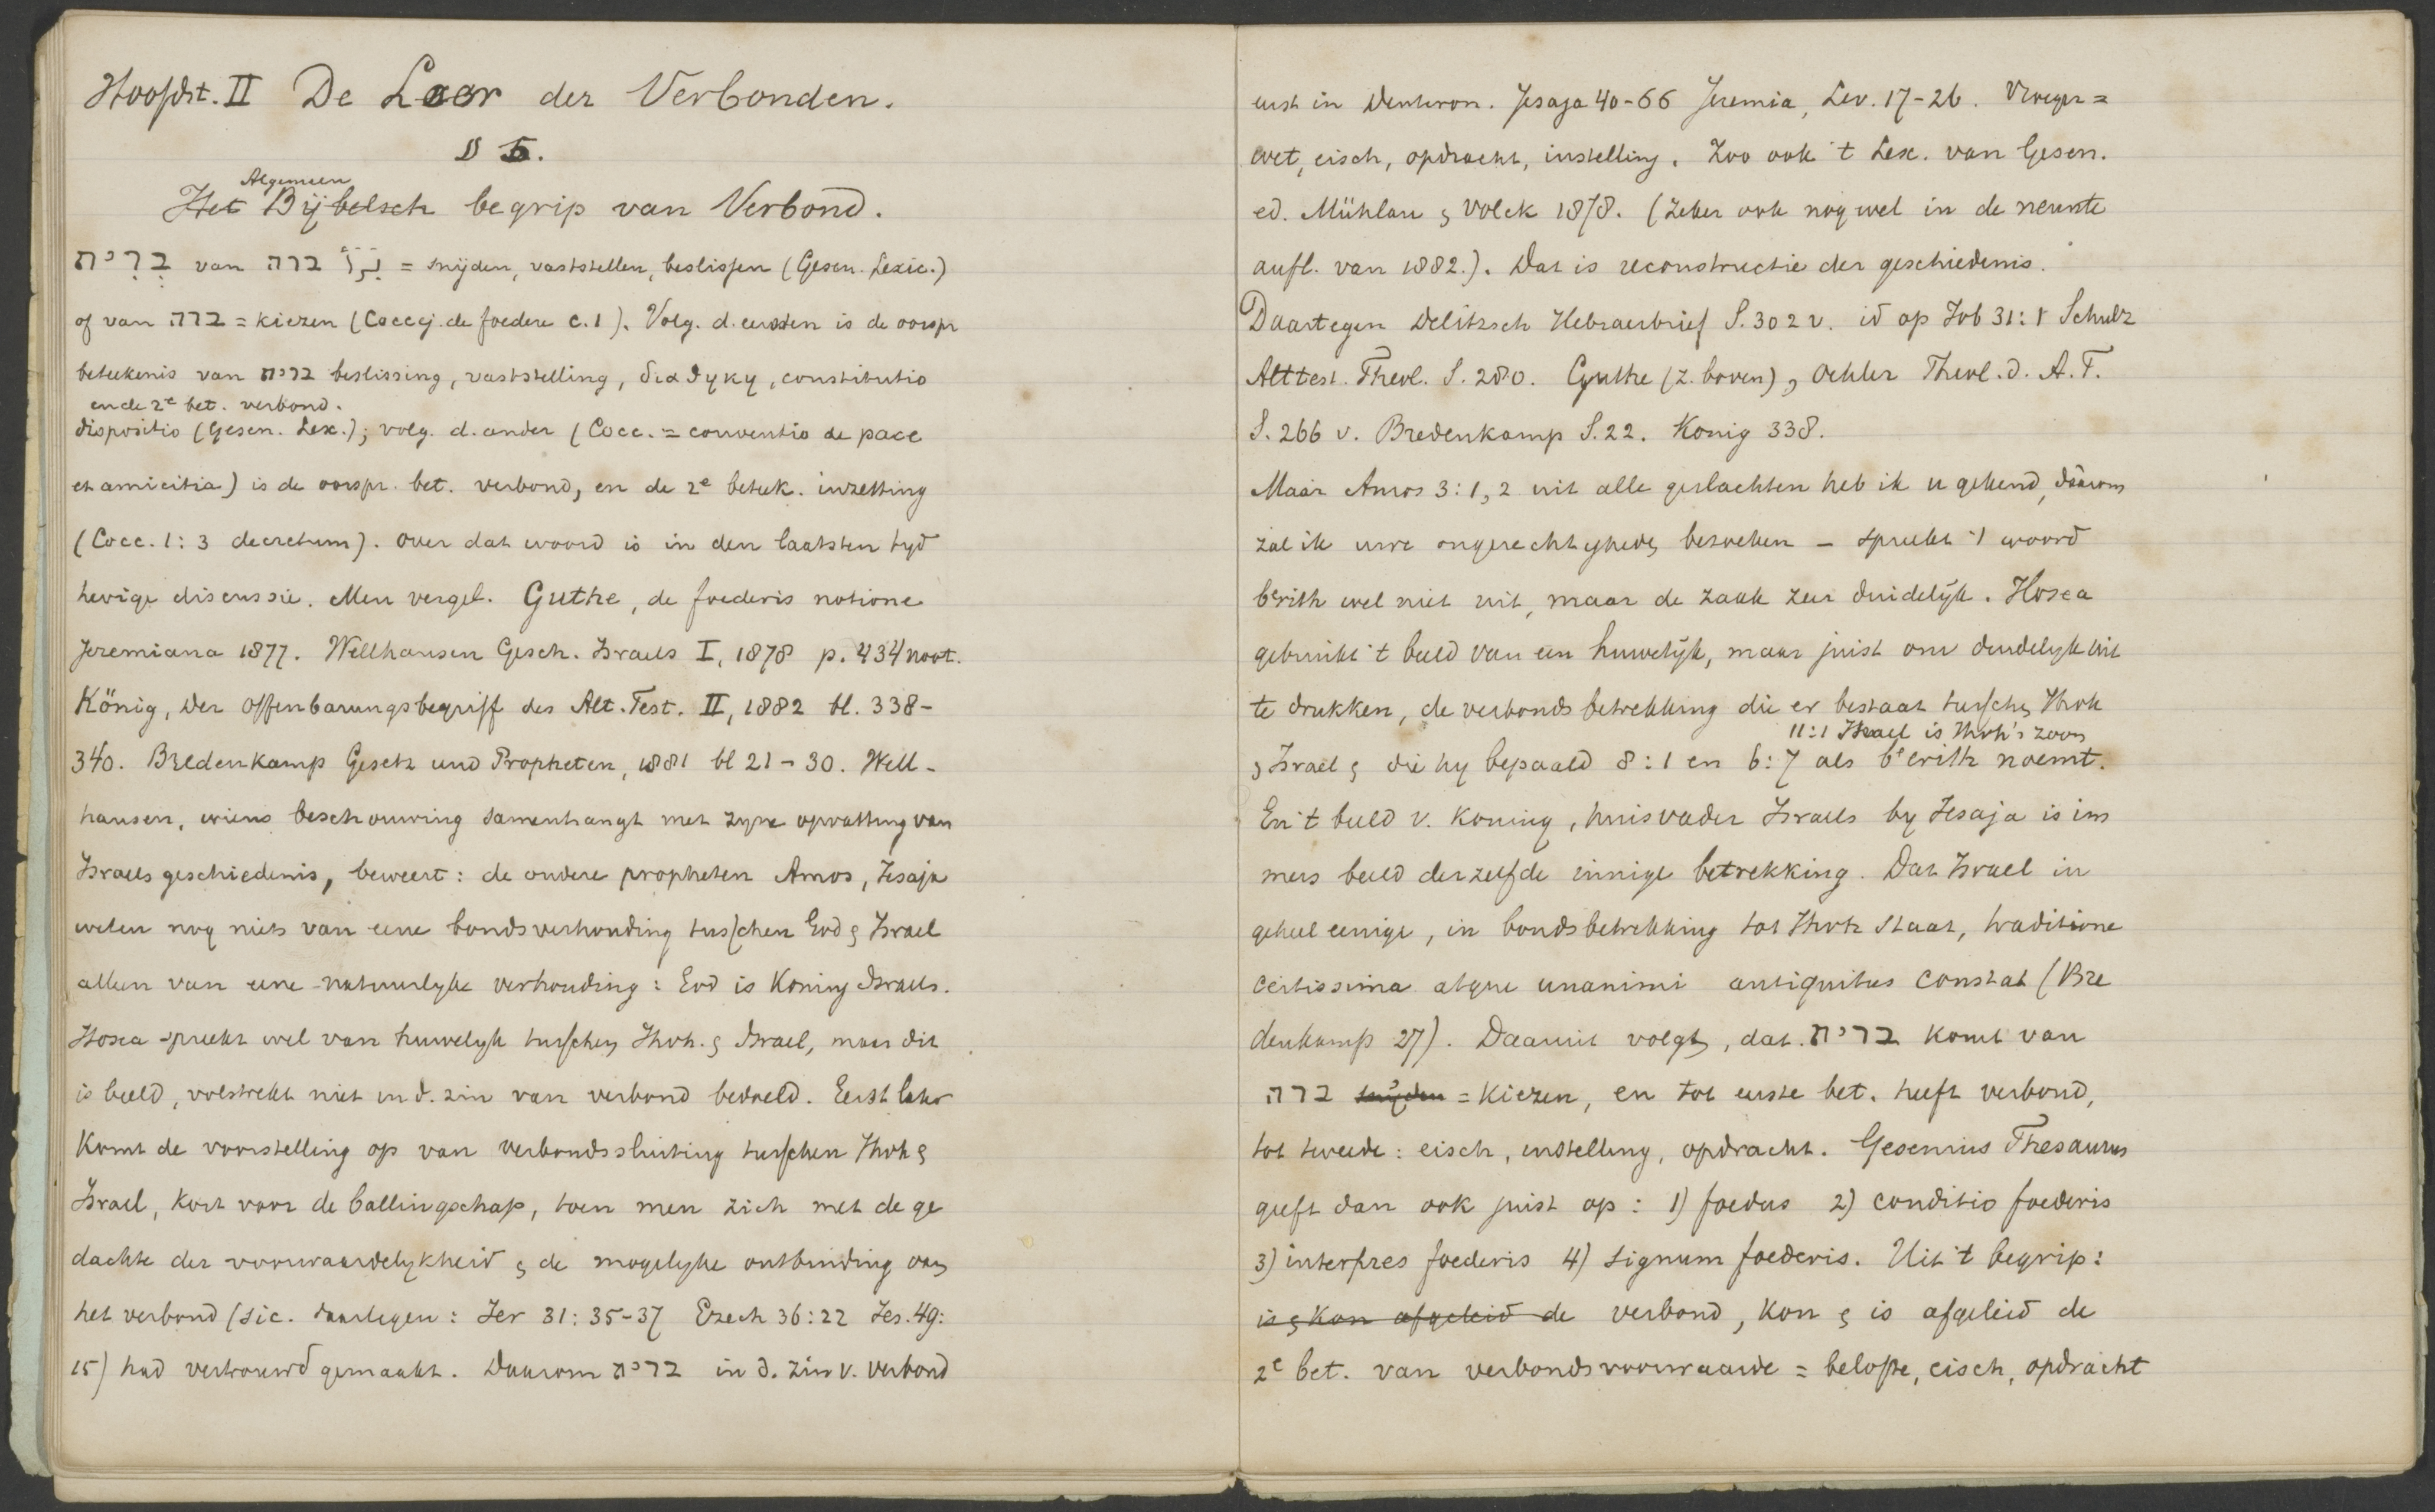 Hoofdst. II De Leer der Verbonden.
§ 5.
Algemeen
Het Bijbelsch begrip van Verbond.
בְּרִית van ברה = snijden, vaststellen, beslissen (Gesen. Lexic.)
of van ברה = kiezen (Coccej. de foedere c. 1). Volg. d. eersten is de oorspr
beteekenis van ברית beslissing, vaststelling, διαθηκη, constitutio
en de 2e bet. verbond.
dispositio (Gesen. Lex.); volg. d. ander (Cocc. = conventio de pace
et amicitia) is de oorspr. bet. verbond, en de 2e beteek. inzetting
(Cocc. 1:3 decretum). Over dat woord is in den laatsten tyd
hevige discussie. Men vergel. Guthe, de foederis notione
Jeremiana 1877. Wellhausen Gesch. Israels I, 1878 p. 434 noot.
König, Der Offenbarungsbegriff des Alt. Test. II, 1882 bl. 338-
340. Bredenkamp Gesetz und Propheten, 1881 bl 21-30. Well-
hausen, wiens beschouwing samenhangt met zyne opvatting van
Israels geschiedenis, beweert: de oudere propheten Amos, Jesaja
weten nog niets van eene bondsverhouding tusschen God & Israel
alleen van eene natuurlyke verhouding: God is Koning Israels.
Hosea spreekt wel van huwelyk tusschen Ihvh. & Israel, maar dit
is beeld, volstrekt niet in d. zin van verbond bedoeld. Eerst later
komt de voorstelling op van verbondssluiting tusschen Ihvh &
Israel, kort voor de ballingschap, toen men zich met de ge
dachte der voorwaardelykheid & de mogelyke ontbinding van
het verbond (sic. daartegen: Jer 31:35-37 Ezech 36:22 Jes. 49:
15) had vertrouwd gemaakt. Daarom ברית in d. zin v. verbond
eerst in Deuteron. Jesaja 40-66 Jeremia, Lev. 17-26. Vroeger =
wet, eisch, opdracht, instelling. Zoo ook 't Lex. van Gesen.
ed. Mühlau & Volck 1878. (Zeker ook nog wel in de neunte
aufl. van 1882.). Dat is reconstructie der geschiedenis.
Daartegen Delitzsch Hebraerbrief S. 302 v. id op Job 31:1 Schulz
Alttest. Theol. S. 280. Guthe (z. boven), Oehler Theol. d. A. T.
S. 266 v. Bredenkamp S. 22. Konig 338.
Maar Amos 3:1,2 uit alle geslachten heb ik u gekend, dáárom
zal ik uwe ongerechtigheden bezoeken - spreekt 't woord
berith wel niet uit, maar de zaak zeer duidelijk. Hosea
gebruikt 't beeld van een huwelijk, maar juist om duidelyk uit
te drukken, de verbondsbetrekking die er bestaat tusschen Ihvh
11:1 Israel is Ihvh's zoon
& Israel & die hy bepaald 8:1 en 6:7 als berith noemt.
En 't beeld v. Koning, huisvader Israels by Jesaja is im
mers beeld derzelfde innige betrekking. Dat Israel in
geheel eenige, in bondsbetrekking tot Ihvh staat, traditione
certissima atque unanimi antiquitus constat (Bre
denkamp 27). Daaruit volgt, dat ברית komt van
ברה snijden = Kiezen, en tot eerste bet. heeft verbond,
tot tweede: eisch, instelling, opdracht. Gesenius Thesaurus
geeft dan ook juist op: 1) foedus 2) conditio foederis
3) interpres foederis 4) signum foederis. Uit 't begrip:
is & kon afgeleid de verbond, kon & is afgeleid de
2e bet. van verbondsvoorwaarde = belofte, eisch, opdracht